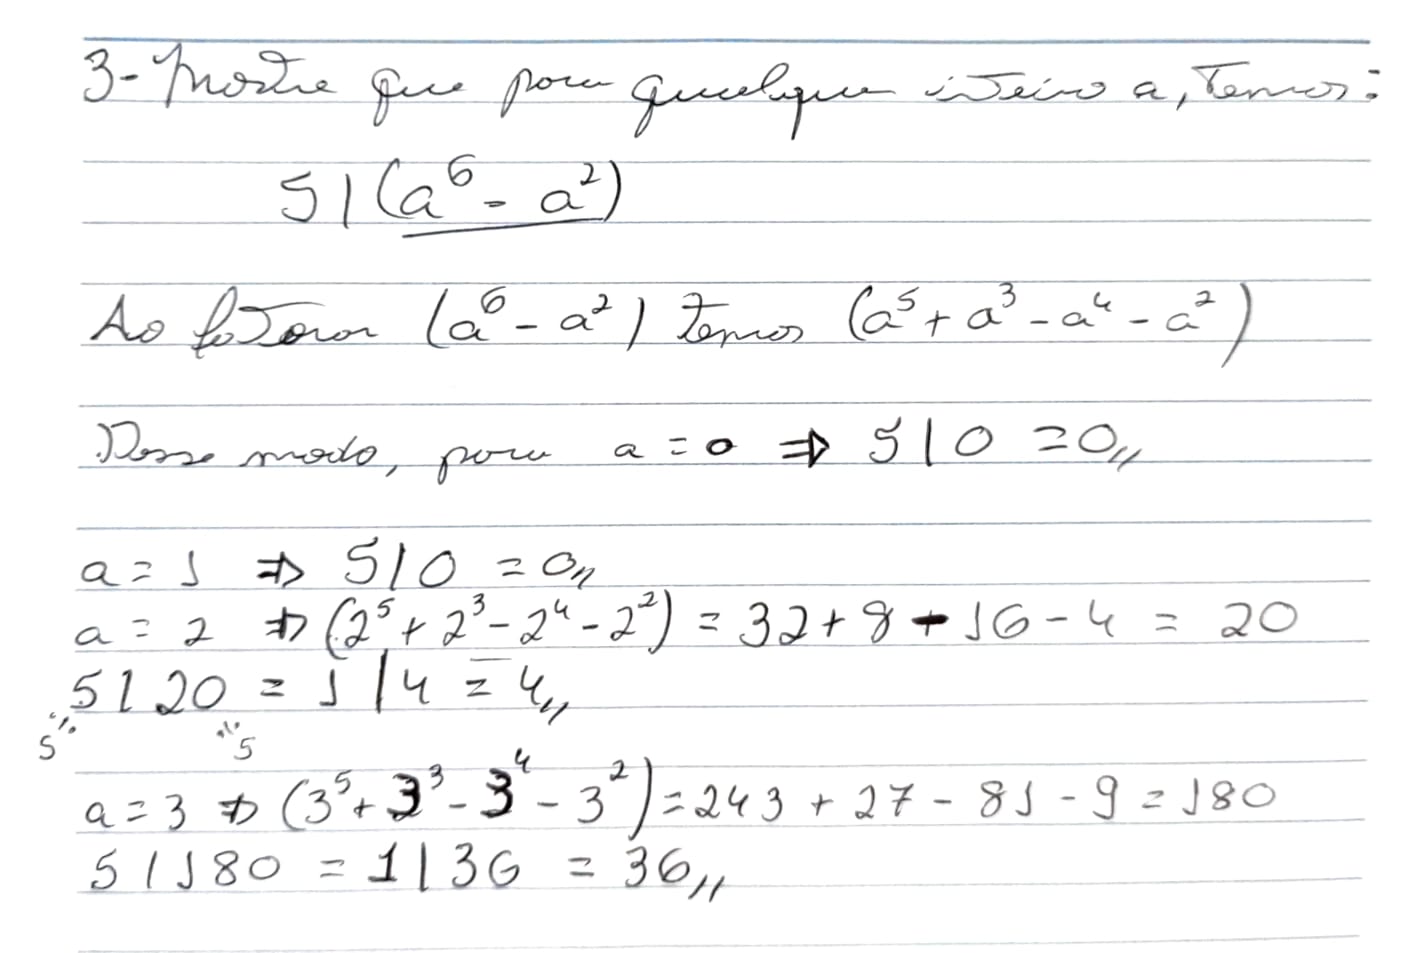 3- Mostre que para qualquer inteiro a, temos:
5|(a⁶ - a²)
Ao fatorar (a⁶ - a²) temos (a⁵ + a³ - a⁴ - a²)
Desse modo, para a = 0 ⇒ 5|0 = 0,,
a = 1 ⇒ 5|0 = 0,,
a = 2 ⇒ (2⁵ + 2³ - 2⁴ - 2²) = 32 + 8 - 16 - 4 = 20
5|20 = 1|4 = 4,,
÷5 ÷5
a = 3 ⇒ (3⁵ + 3³ - 3⁴ - 3²) = 243 + 27 - 81 - 9 = 180
5|180 = 1|36 = 36,,